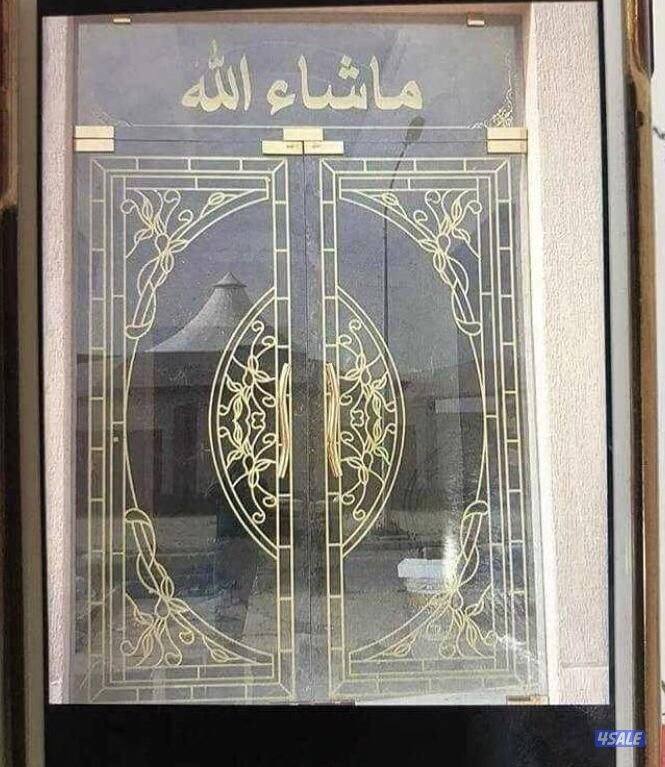 ماشاء الله
4SALE